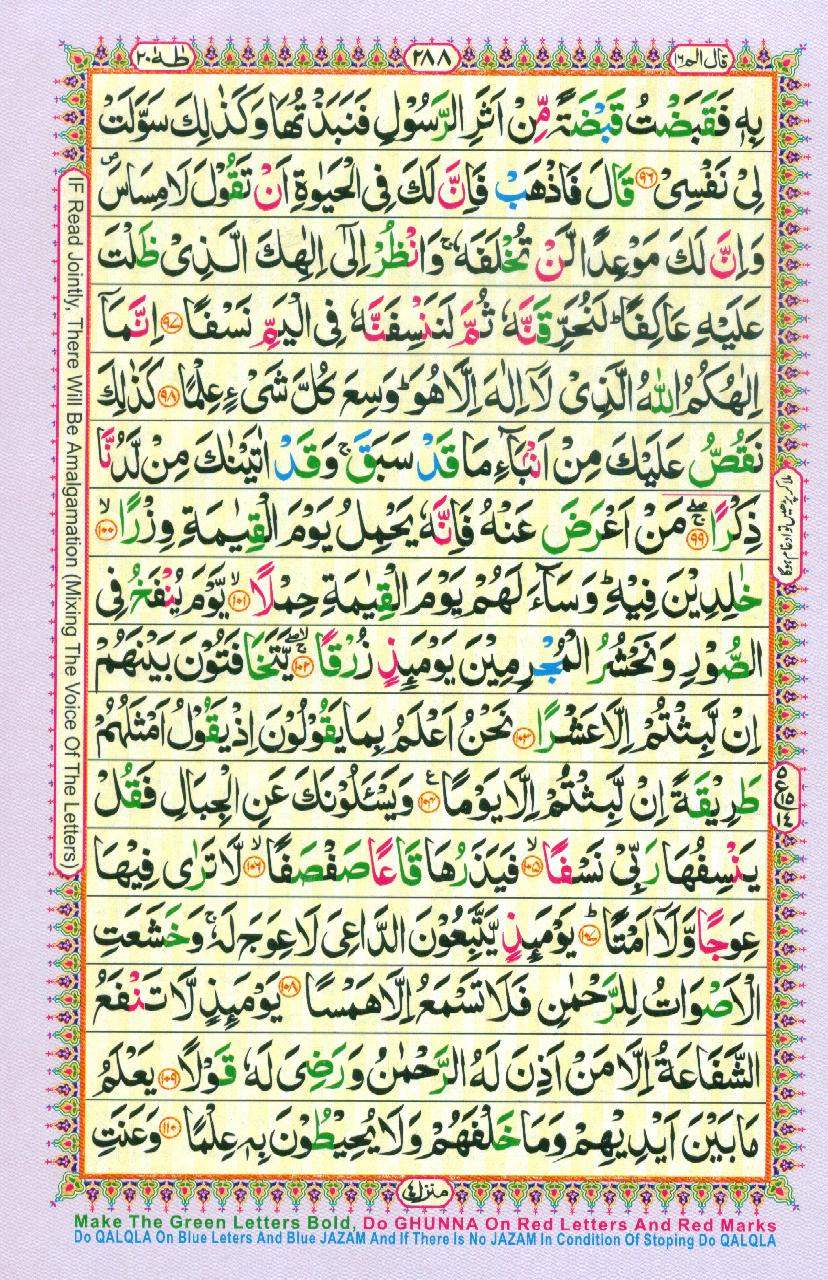 قال الم ١٦
٢٨٨
طٰهٰ ٢٠
بِهٖ فَقَبَضْتُ قَبْضَةً مِّنْ اَثَرِ الرَّسُوْلِ فَنَبَذْتُهَا وَكَذٰلِكَ سَوَّلَتْ
لِیْ نَفْسِیْ ﴿٩٦﴾ قَالَ فَاذْهَبْ فَاِنَّ لَكَ فِی الْحَیٰوةِ اَنْ تَقُوْلَ لَا مِسَاسَ ۪
وَاِنَّ لَكَ مَوْعِدًا لَّنْ تُخْلَفَهٗ ۚ وَانْظُرْ اِلٰۤی اِلٰهِكَ الَّذِیْ ظَلْتَ
عَلَیْهِ عَاكِفًا ؕ لَنُحَرِّقَنَّهٗ ثُمَّ لَنَنْسِفَنَّهٗ فِی الْیَمِّ نَسْفًا ﴿٩٧﴾ اِنَّمَاۤ
اِلٰهُكُمُ اللّٰهُ الَّذِیْ لَاۤ اِلٰهَ اِلَّا هُوَ ؕ وَسِعَ كُلَّ شَیْءٍ عِلْمًا ﴿٩٨﴾ كَذٰلِكَ
نَقُصُّ عَلَیْكَ مِنْ اَنْۢبَآءِ مَا قَدْ سَبَقَ ۚ وَقَدْ اٰتَیْنٰكَ مِنْ لَّدُنَّا
ذِكْرًا ﴿٩٩﴾ مَنْ اَعْرَضَ عَنْهُ فَاِنَّهٗ یَحْمِلُ یَوْمَ الْقِیٰمَةِ وِزْرًا ﴿١٠٠﴾ ۙ
خٰلِدِیْنَ فِیْهِ ؕ وَسَآءَ لَهُمْ یَوْمَ الْقِیٰمَةِ حِمْلًا ﴿١٠١﴾ ۙ یَّوْمَ یُنْفَخُ فِی
الصُّوْرِ وَنَحْشُرُ الْمُجْرِمِیْنَ یَوْمَىِٕذٍ زُرْقًا ﴿١٠٢﴾ یَّتَخَافَتُوْنَ بَیْنَهُمْ
اِنْ لَّبِثْتُمْ اِلَّا عَشْرًا ﴿١٠٣﴾ نَحْنُ اَعْلَمُ بِمَا یَقُوْلُوْنَ اِذْ یَقُوْلُ اَمْثَلُهُمْ
طَرِیْقَةً اِنْ لَّبِثْتُمْ اِلَّا یَوْمًا ﴿١٠٤﴾ ع وَیَسْـَٔلُوْنَكَ عَنِ الْجِبَالِ فَقُلْ
یَنْسِفُهَا رَبِّیْ نَسْفًا ﴿١٠٥﴾ ۙ فَیَذَرُهَا قَاعًا صَفْصَفًا ﴿١٠٦﴾ ۙ لَّا تَرٰی فِیْهَا
عِوَجًا وَّلَاۤ اَمْتًا ﴿١٠٧﴾ ؕ یَوْمَىِٕذٍ یَّتَّبِعُوْنَ الدَّاعِیَ لَا عِوَجَ لَهٗ ۚ وَخَشَعَتِ
الْاَصْوَاتُ لِلرَّحْمٰنِ فَلَا تَسْمَعُ اِلَّا هَمْسًا ﴿١٠٨﴾ یَوْمَىِٕذٍ لَّا تَنْفَعُ
الشَّفَاعَةُ اِلَّا مَنْ اَذِنَ لَهُ الرَّحْمٰنُ وَرَضِیَ لَهٗ قَوْلًا ﴿١٠٩﴾ یَعْلَمُ
مَا بَیْنَ اَیْدِیْهِمْ وَمَا خَلْفَهُمْ وَلَا یُحِیْطُوْنَ بِهٖ عِلْمًا ﴿١١٠﴾ وَعَنَتِ
منزل ٤
IF Read Jointly, There Will Be Amalgamation (Mixing The Voice Of The Letters)
Make The Green Letters Bold, Do GHUNNA On Red Letters And Red Marks
Do QALQLA On Blue Leters And Blue JAZAM And If There Is No JAZAM In Condition Of Stoping Do QALQLA